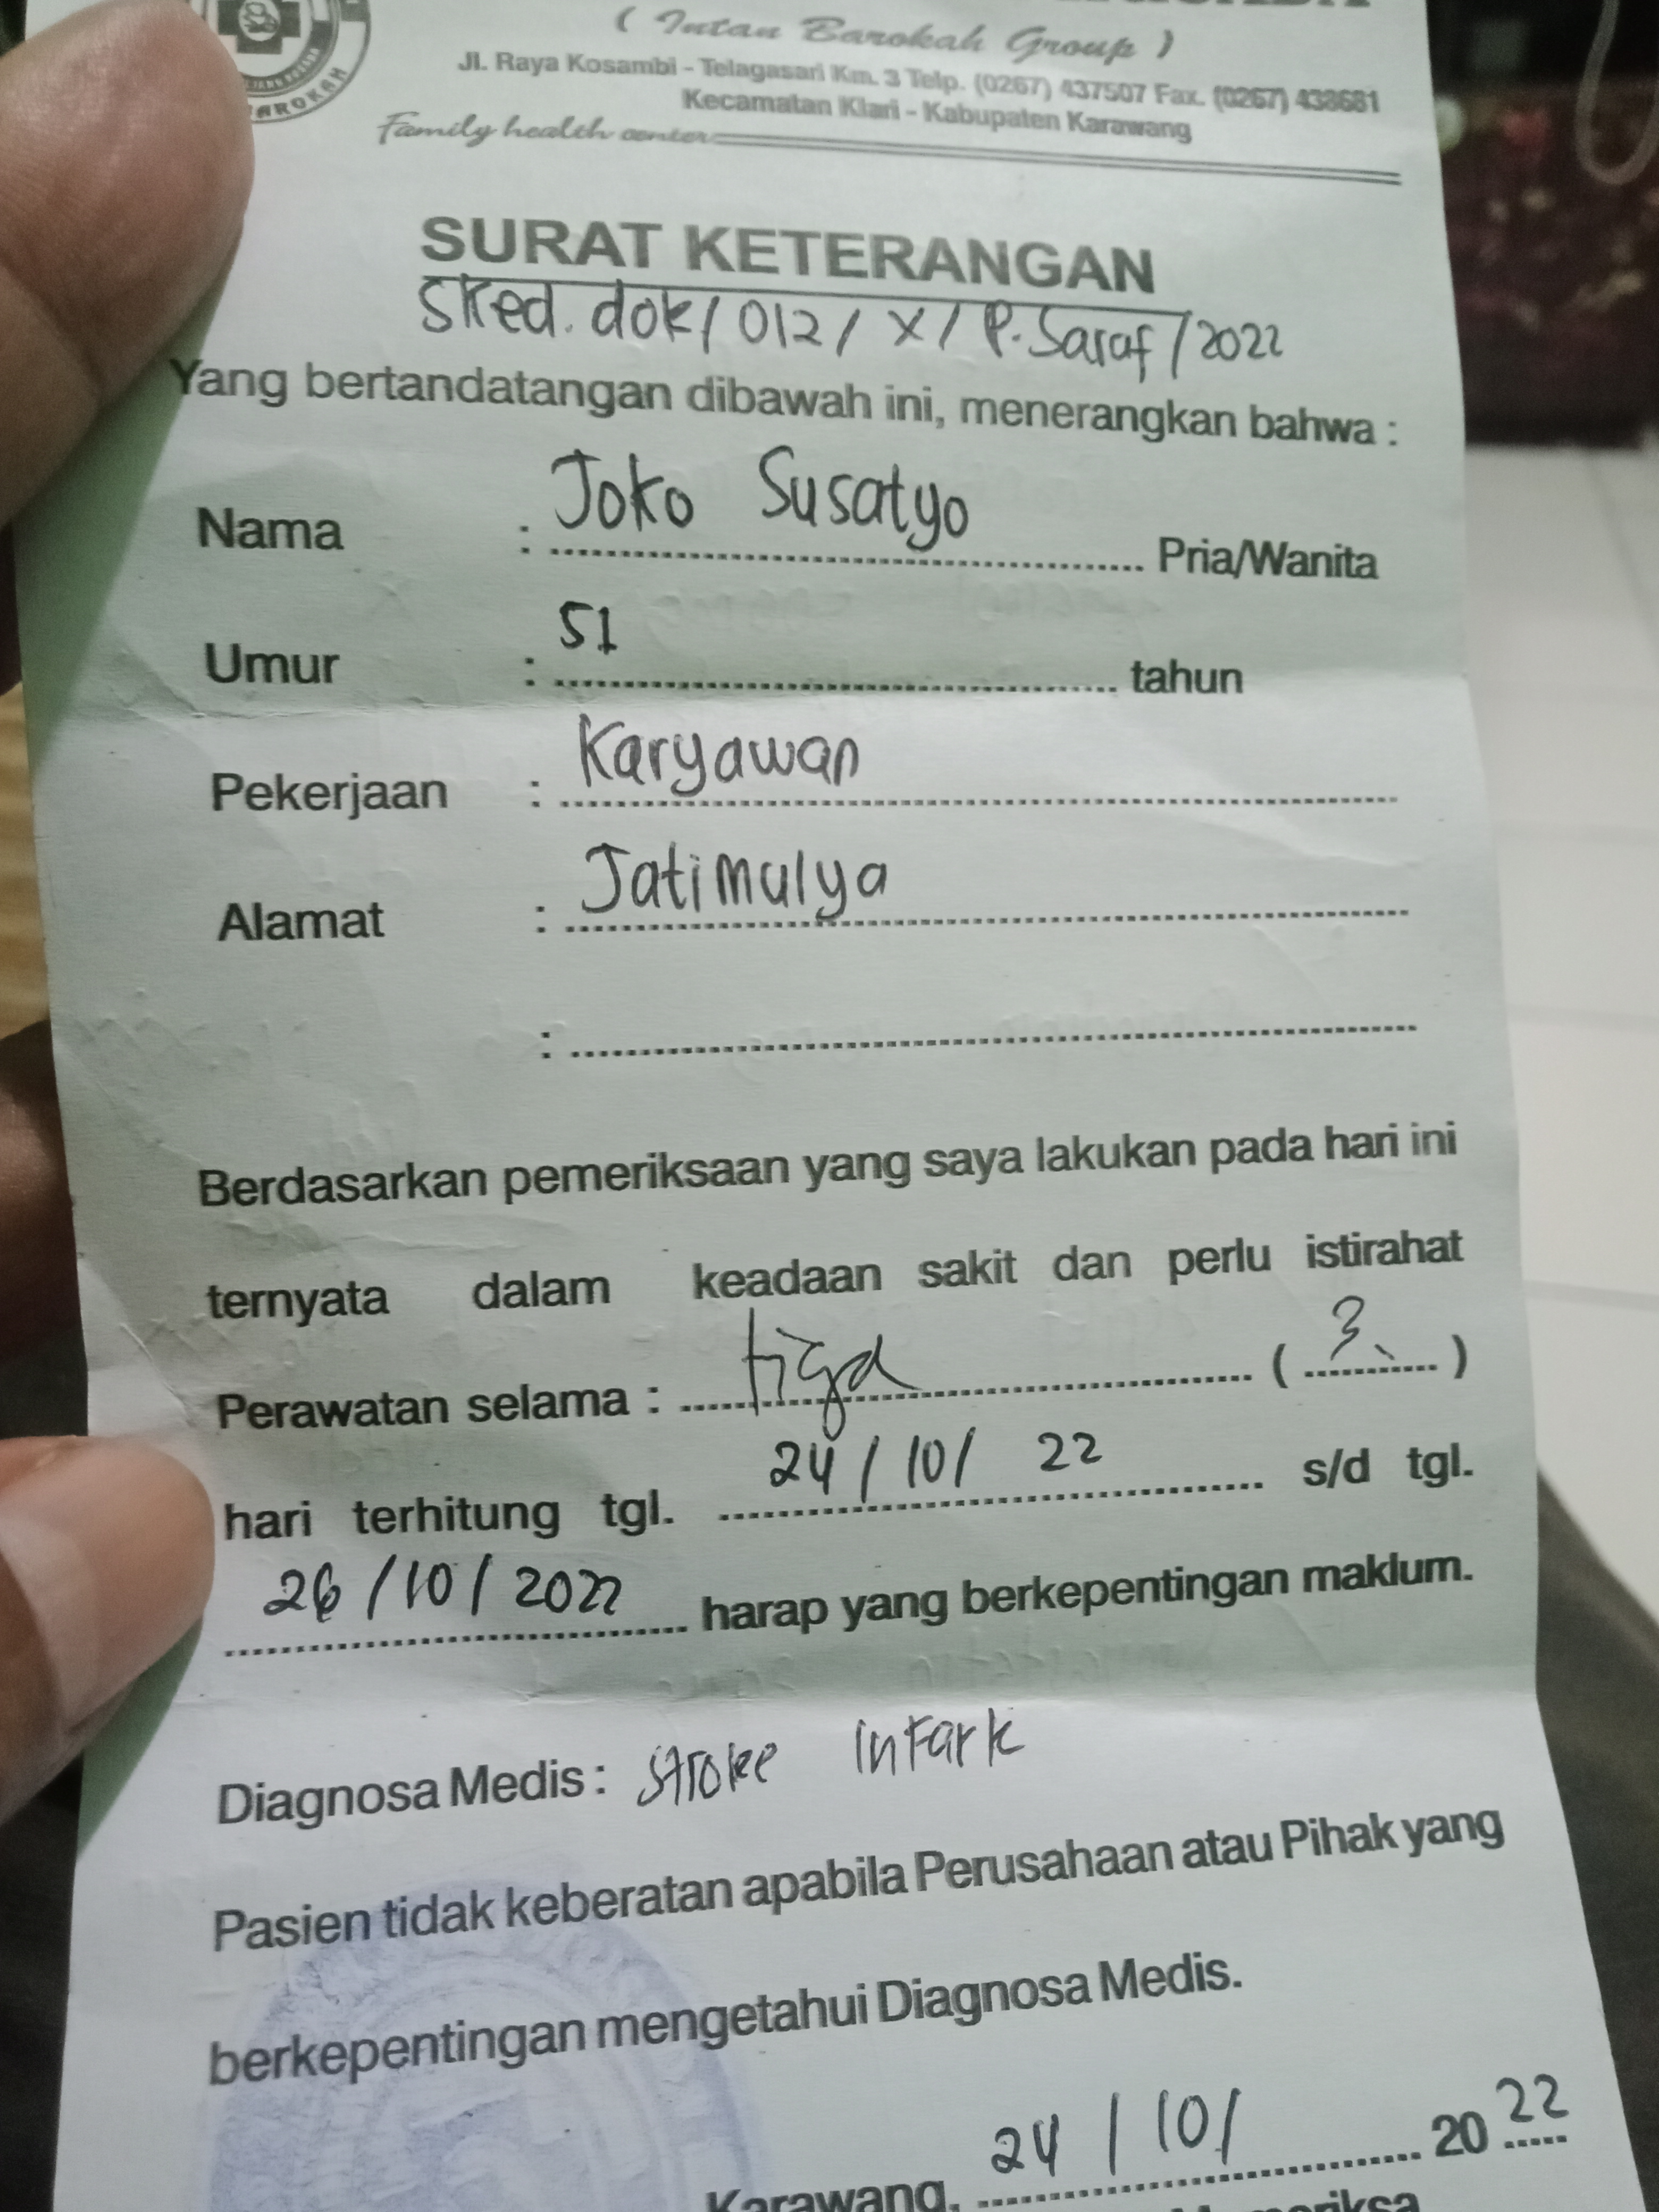 AROKAH
( Intan Barokah Group )
Jl. Raya Kosambi - Telagasari Km. 3 Telp. (0267) 437507 Fax. (0267) 438681
Kecamatan Klari - Kabupaten Karawang
Family health center
SURAT KETERANGAN
SKed. dok / 012 / X / P. Saraf / 2022
Yang bertandatangan dibawah ini, menerangkan bahwa :
Nama : Joko Susatyo Pria/Wanita
Umur : 51 tahun
Pekerjaan : Karyawan
Alamat : Jatimulya
:
Berdasarkan pemeriksaan yang saya lakukan pada hari ini
ternyata dalam keadaan sakit dan perlu istirahat
Perawatan selama : tiga ( 3 )
hari terhitung tgl. 24 / 10 / 22 s/d tgl.
26 / 10 / 2022 harap yang berkepentingan maklum.
Diagnosa Medis : Stroke Infark
Pasien tidak keberatan apabila Perusahaan atau Pihak yang
berkepentingan mengetahui Diagnosa Medis.
Karawang, 24 / 10 / 20 22